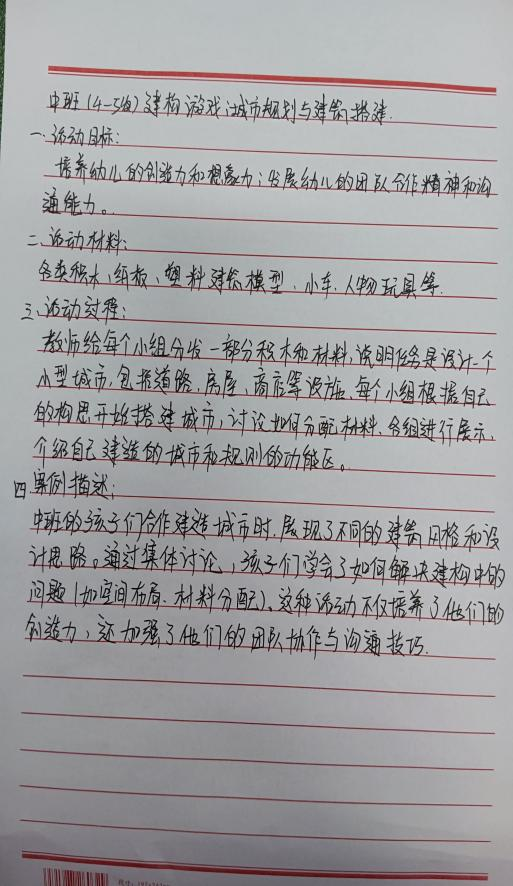 中班(4-5岁)建构游戏:城市规划与建筑搭建.
一.活动目标:
培养幼儿的创造力和想象力;发展幼儿的团队合作精神和沟
通能力。
二.活动材料:
各类积木、纸板、塑料建筑模型、小车、人物玩具等.
三.活动过程:
教师给每个小组分发一部分积木和材料,说明任务是设计一个
小型城市,包括道路、房屋、商店等设施.每个小组根据自己
的构思开始搭建城市,讨论如何分配材料.各组进行展示,
介绍自己建造的城市和规则的功能区。
四.案例描述:
中班的孩子们合作建造城市时,展现了不同的建筑风格和设
计思路。通过集体讨论,孩子们学会了如何解决建构中的
问题(如空间布局、材料分配)、这种活动不仅培养了他们的
创造力,还加强了他们的团队协作与沟通技巧.